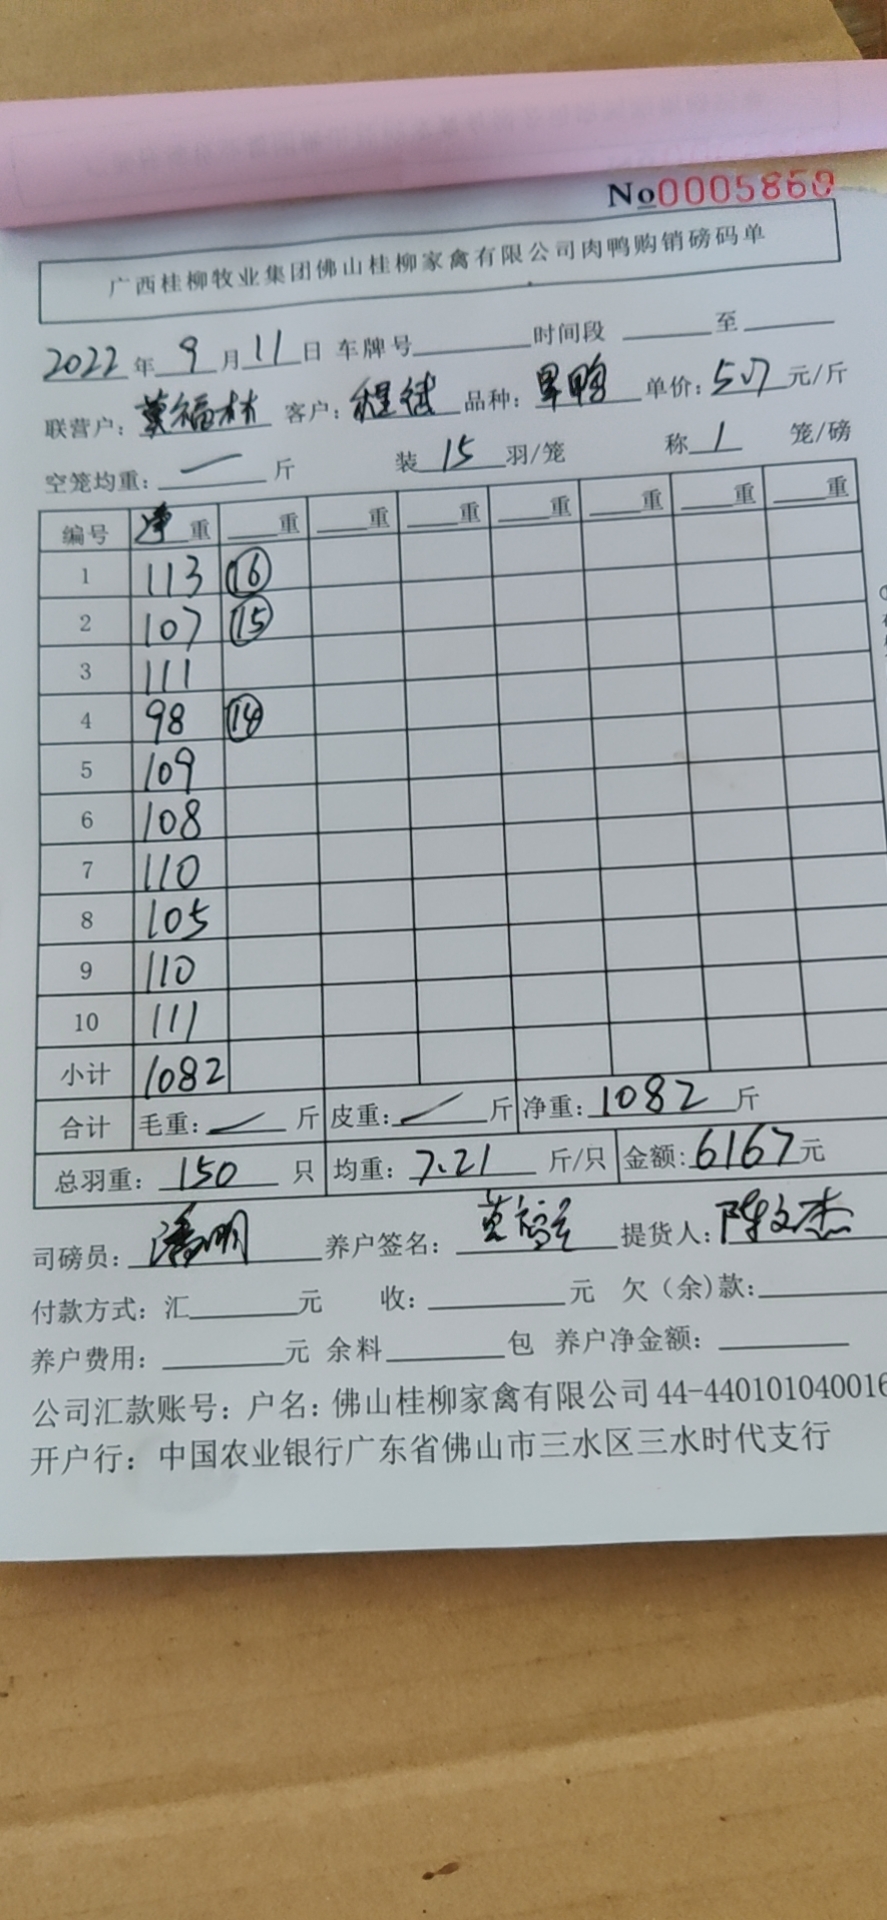 No0005860
广西桂柳牧业集团佛山桂柳家禽有限公司肉鸭购销磅码单
2022年9月11日 车牌号 时间段 至
联营户：莫福林 客户：程斌 品种：旱鸭 单价：5.7元/斤
空笼均重：一 斤 装15羽/笼 称1笼/磅
编号 净重 重 重 重 重 重 重 重
1 113 16
2 107 15
3 111
4 98 14
5 109
6 108
7 110
8 105
9 110
10 111
小计 1082
合计 毛重： 斤 皮重： 斤 净重：1082斤
总羽重：150只 均重：7.21斤/只 金额：6167元
司磅员：潘明 养户签名： 提货人：陈文杰
付款方式：汇 元 收： 元 欠（余）款：
养户费用： 元 余料 包 养户净金额：
公司汇款账号：户名：佛山桂柳家禽有限公司 44-440101040016
开户行：中国农业银行广东省佛山市三水区三水时代支行